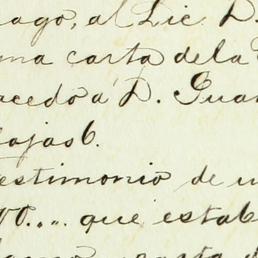 ago, al Lic. D.
una carta de la
acedo a D. Juan
ojas 6.
estimonio de u
que estab
carta d